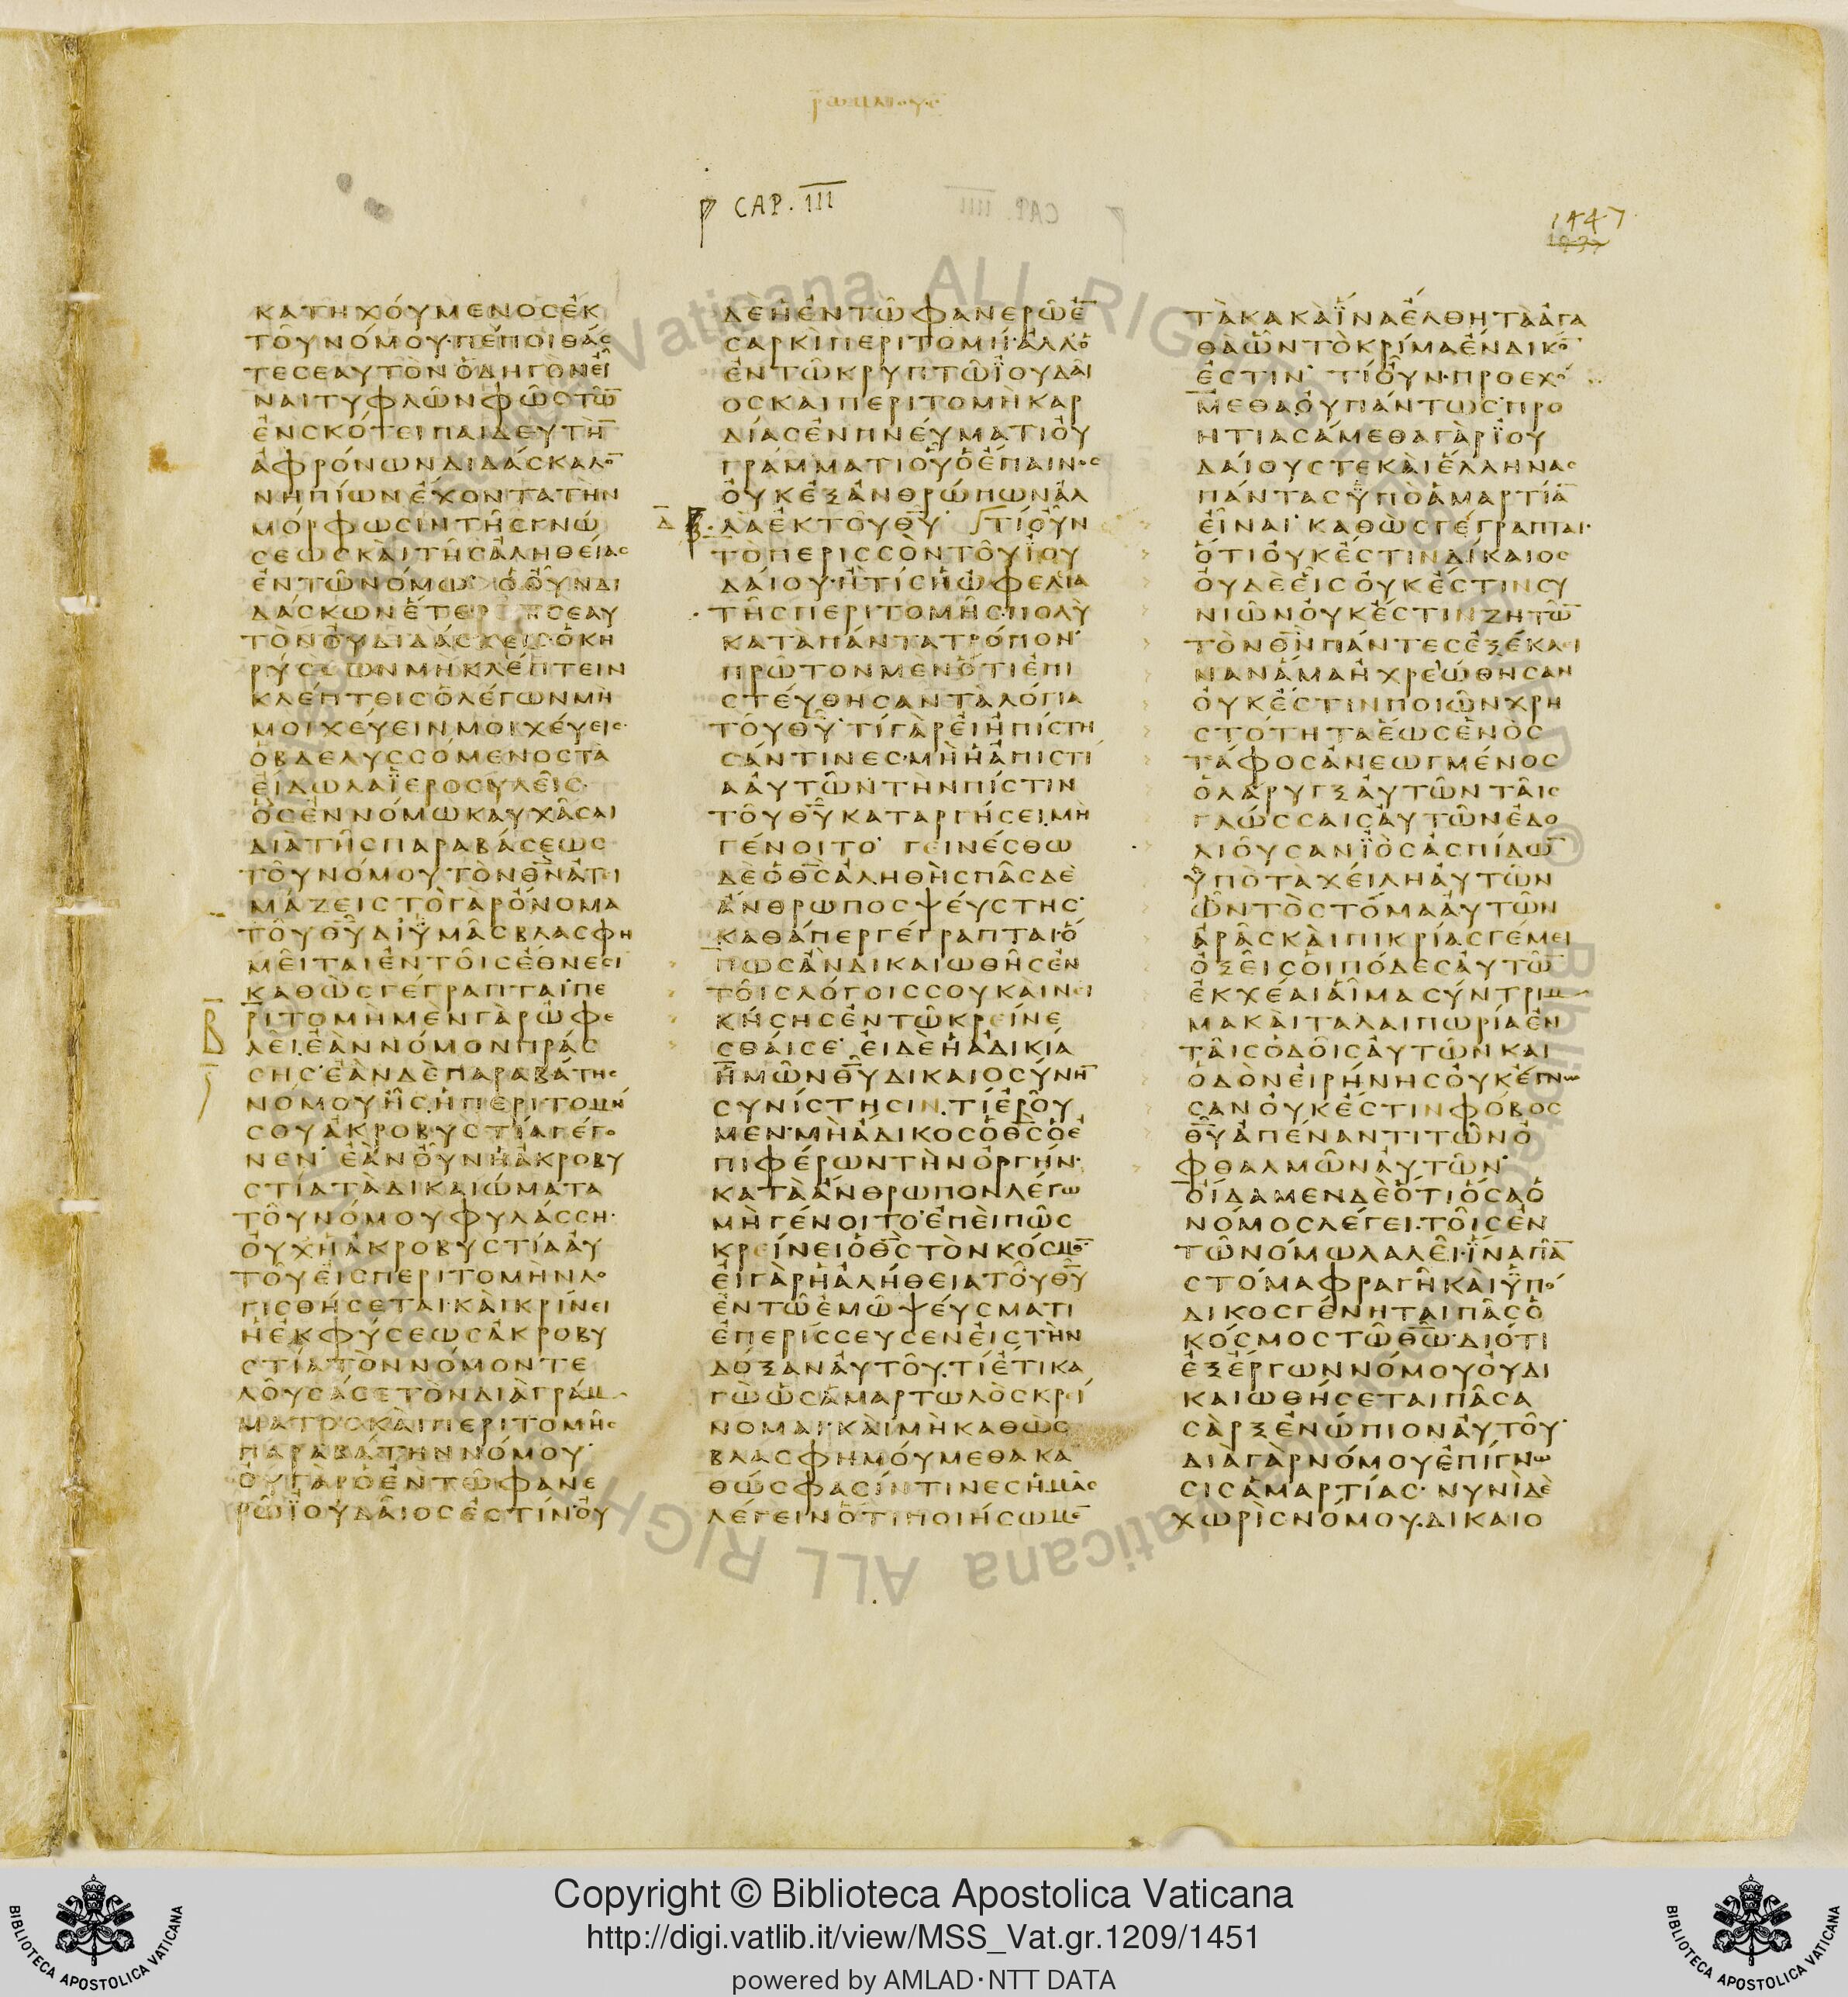 ῥωμαιους
CAP. III
1447
ΚΑΤΗΧΟΥΜΕΝΟϹΕΚ
ΤΟΥΝΟΜΟΥ·ΠΕΠΟΙΘΑϹ
ΤΕϹΕΑΥΤΟΝΟΔΗΓΟΝΕΙ
ΝΑΙΤΥΦΛΩΝΦΩϹΤΩ̅
ΕΝϹΚΟΤΕΙΠΑΙΔΕΥΤΗ̅
ΑΦΡΟΝΩΝΔΙΔΑϹΚΑΛΟ̅
ΝΗΠΙΩΝΕΧΟΝΤΑΤΗΝ
ΜΟΡΦΩϹΙΝΤΗϹΓΝΩ
ϹΕΩϹΚΑΙΤΗϹΑΛΗΘΕΙΑϹ
ΕΝΤΩΝΟΜΩ·ΟΟΥΝΔΙ
ΔΑϹΚΩΝΕΤΕΡΟΝϹΕΑΥ
ΤΟΝΟΥΔΙΔΑϹΚΕΙϹ·ΟΚΗ
ΡΥϹϹΩΝΜΗΚΛΕΠΤΕΙΝ
ΚΛΕΠΤΕΙϹΟΛΕΓΩΝΜΗ
ΜΟΙΧΕΥΕΙΝΜΟΙΧΕΥΕΙϹ·
ΟΒΔΕΛΥϹϹΟΜΕΝΟϹΤΑ
ΕΙΔΩΛΑΪΕΡΟϹΥΛΕΙϹ·
ΟϹΕΝΝΟΜΩΚΑΥΧΑϹΑΙ
ΔΙΑΤΗϹΠΑΡΑΒΑϹΕΩϹ
ΤΟΥΝΟΜΟΥ·ΤΟΝΘ̅Ν̅ΑΤΙ
ΜΑΖΕΙϹΤΟΓΑΡΟΝΟΜΑ
ΤΟΥΘ̅Υ̅ΔΙΫΜΑϹΒΛΑϹΦΗ
ΜΕΙΤΑΙΕΝΤΟΙϹΕΘΝΕϹΙ
ΚΑΘΩϹΓΕΓΡΑΠΤΑΙ·ΠΕ
Β ΡΙΤΟΜΗΜΕΝΓΑΡΩΦΕ
ΛΕΙ·ΕΑΝΝΟΜΟΝΠΡΑϹ
ϹΗϹ·ΕΑΝΔΕΠΑΡΑΒΑΤΗϹ
ΝΟΜΟΥΗϹ·ΗΠΕΡΙΤΟΜΗ
ϹΟΥΑΚΡΟΒΥϹΤΙΑΓΕΓΟ
ΝΕΝ·ΕΑΝΟΥΝΗΑΚΡΟΒΥ
ϹΤΙΑΤΑΔΙΚΑΙΩΜΑΤΑ
ΤΟΥΝΟΜΟΥΦΥΛΑϹϹΗ·
ΟΥΧΗΑΚΡΟΒΥϹΤΙΑΑΥ
ΤΟΥΕΙϹΠΕΡΙΤΟΜΗΝΛΟ
ΓΙϹΘΗϹΕΤΑΙ·ΚΑΙΚΡΙΝΕΙ
ΗΕΚΦΥϹΕΩϹΑΚΡΟΒΥ
ϹΤΙΑΤΟΝΝΟΜΟΝΤΕ
ΛΟΥϹΑϹΕΤΟΝΔΙΑΓΡΑΜ
ΜΑΤΟϹΚΑΙΠΕΡΙΤΟΜΗϹ
ΠΑΡΑΒΑΤΗΝΝΟΜΟΥ·
ΟΥΓΑΡΟΕΝΤΩΦΑΝΕ
ΡΩΪΟΥΔΑΙΟϹΕϹΤΙΝ·ΟΥ
ΔΕΗΕΝΤΩΦΑΝΕΡΩΕ̅
ϹΑΡΚΙΠΕΡΙΤΟΜΗ·ΑΛΛΟ
ΕΝΤΩΚΡΥΠΤΩΪΟΥΔΑΙ
ΟϹΚΑΙΠΕΡΙΤΟΜΗΚΑΡ
ΔΙΑϹΕΝΠΝΕΥΜΑΤΙΟΥ
ΓΡΑΜΜΑΤΙΟΥΟΕΠΑΙΝΟϹ
ΟΥΚΕΞΑΝΘΡΩΠΩΝΑΛ
Δ ΛΑΕΚΤΟΥΘ̅Υ̅ ΤΙΟΥΝ
ΤΟΠΕΡΙϹϹΟΝΤΟΥΪΟΥ
ΔΑΙΟΥ·ΗΤΙϹΗΩΦΕΛΙΑ
ΤΗϹΠΕΡΙΤΟΜΗϹ·ΠΟΛΥ
ΚΑΤΑΠΑΝΤΑΤΡΟΠΟΝ·
ΠΡΩΤΟΝΜΕΝΟΤΙΕΠΙ
ϹΤΕΥΘΗϹΑΝΤΑΛΟΓΙΑ
ΤΟΥΘ̅Υ̅·ΤΙΓΑΡΕΙΗΠΙϹΤΗ
ϹΑΝΤΙΝΕϹ·ΜΗΗΑΠΙϹΤΙ
ΑΑΥΤΩΝΤΗΝΠΙϹΤΙΝ
ΤΟΥΘ̅Υ̅ΚΑΤΑΡΓΗϹΕΙ·ΜΗ
ΓΕΝΟΙΤΟ· ΓΕΙΝΕϹΘΩ
ΔΕΟΘ̅Ϲ̅ΑΛΗΘΗϹΠΑϹΔΕ
ΑΝΘΡΩΠΟϹΨΕΥϹΤΗϹ·
ΚΑΘΑΠΕΡΓΕΓΡΑΠΤΑΙ·Ο
ΠΩϹΑΝΔΙΚΑΙΩΘΗϹΕΝ
ΤΟΙϹΛΟΓΟΙϹϹΟΥΚΑΙΝΕΙ
ΚΗϹΗϹΕΝΤΩΚΡΕΙΝΕ
ϹΘΑΙϹΕ· ΕΙΔΕΗΑΔΙΚΙΑ
ΗΜΩΝΘ̅Υ̅ΔΙΚΑΙΟϹΥΝΗ̅
ϹΥΝΙϹΤΗϹΙΝ·ΤΙΕΡΟΥ
ΜΕΝ·ΜΗΑΔΙΚΟϹΟΘ̅Ϲ̅ΟΕ
ΠΙΦΕΡΩΝΤΗΝΟΡΓΗΝ·
ΚΑΤΑΑΝΘΡΩΠΟΝΛΕΓΩ
ΜΗΓΕΝΟΙΤΟ·ΕΠΕΙΠΩϹ
ΚΡΕΙΝΕΙΟΘ̅Ϲ̅ΤΟΝΚΟϹΜΟ̅·
ΕΙΓΑΡΗΑΛΗΘΕΙΑΤΟΥΘ̅Υ̅
ΕΝΤΩΕΜΩΨΕΥϹΜΑΤΙ
ΕΠΕΡΙϹϹΕΥϹΕΝΕΙϹΤΗΝ
ΔΟΞΑΝΑΥΤΟΥ·ΤΙΕΤΙΚΑ
ΓΩΩϹΑΜΑΡΤΩΛΟϹΚΡΕΙ
ΝΟΜΑΙ·ΚΑΙΜΗΚΑΘΩϹ
ΒΛΑϹΦΗΜΟΥΜΕΘΑΚΑ
ΘΩϹΦΑϹΙΝΤΙΝΕϹΗΜΑϹ
ΛΕΓΕΙΝΟΤΙΠΟΙΗϹΩΜΕ̅
ΤΑΚΑΚΑΪΝΑΕΛΘΗΤΑΑΓΑ
ΘΑΩΝΤΟΚΡΙΜΑΕΝΔΙΚΟ̅
ΕϹΤΙΝ· ΤΙΟΥΝ·ΠΡΟΕΧΟ
ΜΕΘΑ·ΟΥΠΑΝΤΩϹ·ΠΡΟ
ΗΤΙΑϹΑΜΕΘΑΓΑΡΪΟΥ
ΔΑΙΟΥϹΤΕΚΑΙΕΛΛΗΝΑϹ
ΠΑΝΤΑϹΫΠΟΑΜΑΡΤΙΑ̅
ΕΙΝΑΙ·ΚΑΘΩϹΓΕΓΡΑΠΤΑΙ·
ΟΤΙΟΥΚΕϹΤΙΝΔΙΚΑΙΟϹ
ΟΥΔΕΕΙϹΟΥΚΕϹΤΙΝϹΥ
ΝΙΩΝΟΥΚΕϹΤΙΝΖΗΤΩ̅
ΤΟΝΘ̅Ν̅ΠΑΝΤΕϹΕΞΕΚΛΙ
ΝΑΝΑΜΑΗΧΡΕΩΘΗϹΑΝ
ΟΥΚΕϹΤΙΝΠΟΙΩΝΧΡΗ
ϹΤΟΤΗΤΑΕΩϹΕΝΟϹ
ΤΑΦΟϹΑΝΕΩΓΜΕΝΟϹ
ΟΛΑΡΥΓΞΑΥΤΩΝΤΑΙϹ
ΓΛΩϹϹΑΙϹΑΥΤΩΝΕΔΟ
ΛΙΟΥϹΑΝΪΟϹΑϹΠΙΔΩ̅
ΫΠΟΤΑΧΕΙΛΗΑΥΤΩΝ
ΩΝΤΟϹΤΟΜΑΑΥΤΩΝ
ΑΡΑϹΚΑΙΠΙΚΡΙΑϹΓΕΜΕΙ
ΟΞΕΙϹΟΙΠΟΔΕϹΑΥΤΩ̅
ΕΚΧΕΑΙΑΙΜΑϹΥΝΤΡΙΜ
ΜΑΚΑΙΤΑΛΑΙΠΩΡΙΑΕΝ
ΤΑΙϹΟΔΟΙϹΑΥΤΩΝΚΑΙ
ΟΔΟΝΕΙΡΗΝΗϹΟΥΚΕΓΝΩ
ϹΑΝΟΥΚΕϹΤΙΝΦΟΒΟϹ
Θ̅Υ̅ΑΠΕΝΑΝΤΙΤΩΝΟ
ΦΘΑΛΜΩΝΑΥΤΩΝ·
ΟΙΔΑΜΕΝΔΕΟΤΙΟϹΑΟ
ΝΟΜΟϹΛΕΓΕΙ·ΤΟΙϹΕΝ
ΤΩΝΟΜΩΛΑΛΕΙ·ΪΝΑΠΑ̅
ϹΤΟΜΑΦΡΑΓΗΚΑΙΫΠΟ
ΔΙΚΟϹΓΕΝΗΤΑΙΠΑϹΟ
ΚΟϹΜΟϹΤΩΘ̅Ω̅·ΔΙΟΤΙ
ΕΞΕΡΓΩΝΝΟΜΟΥΟΥΔΙ
ΚΑΙΩΘΗϹΕΤΑΙΠΑϹΑ
ϹΑΡΞΕΝΩΠΙΟΝΑΥΤΟΥ·
ΔΙΑΓΑΡΝΟΜΟΥΕΠΙΓΝΩ
ϹΙϹΑΜΑΡΤΙΑϹ·ΝΥΝΙΔΕ
ΧΩΡΙϹΝΟΜΟΥ·ΔΙΚΑΙΟ
Copyright © Biblioteca Apostolica Vaticana
http://digi.vatlib.it/view/MSS_Vat.gr.1209/1451
powered by AMLAD·NTT DATA
BIBLIOTECA APOSTOLICA VATICANA
BIBLIOTECA APOSTOLICA VATICANA